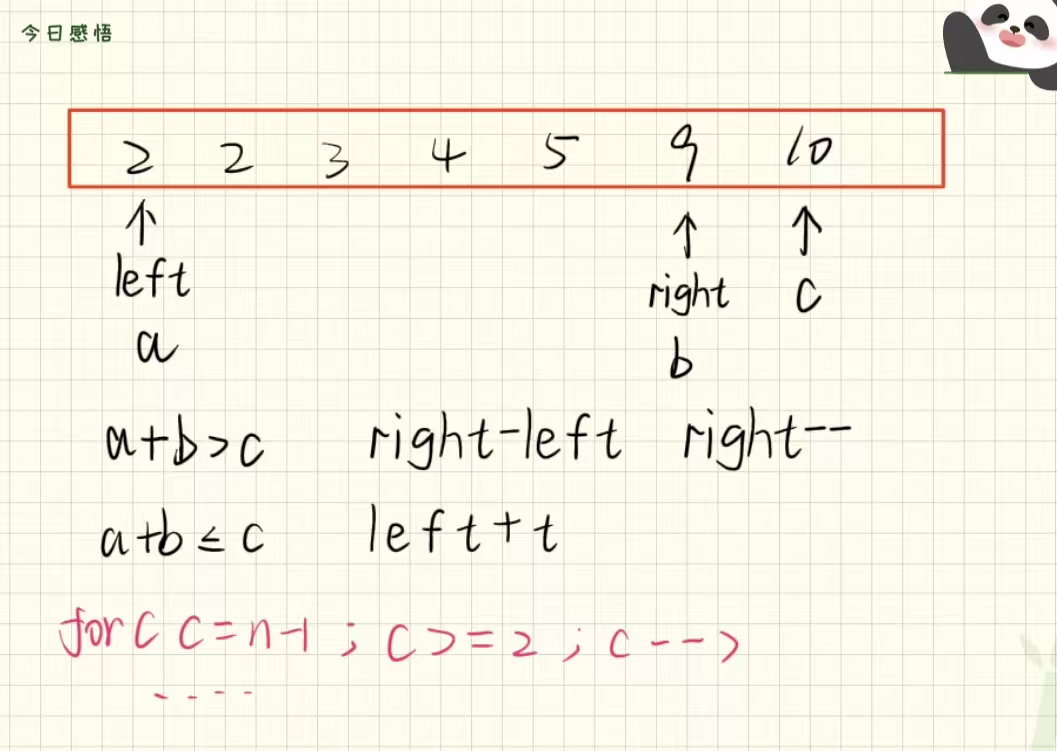 今日感悟
2 2 3 4 5 9 10
↑ ↑ ↑
left right c
a b
a+b>c right-left right--
a+b≤c left++
for( c=n-1 ; c>=2 ; c-->
----